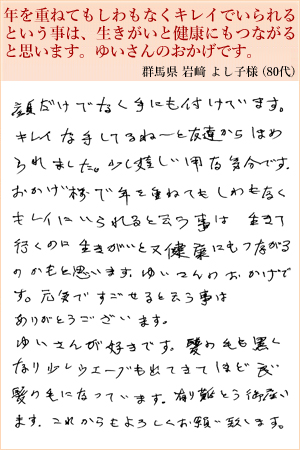 年を重ねてもしわもなくキレイでいられる
という事は、生きがいと健康にもつながる
と思います。ゆいさんのおかげです。
群馬県 岩﨑 よし子様（80代）
顔だけでなく手にも付けています。
キレイな手してるね〜と友達からほめ
られました。少し嬉しい用な気分です。
おかげ様で年を重ねてもしわもなく
キレイにいられると云う事は 生きて
行くのに生きがいと又健康にもつながる
のかもと思います。ゆいさんのおかげで
す。元気ですごせると云う事は
ありがとうございます。
ゆいさんが好きです。髪の毛も黒く
なり少しウエーブも出てきてほど良い
髪の毛になっています。有り難とう御座い
ます。これからもよろしくお願い致します。